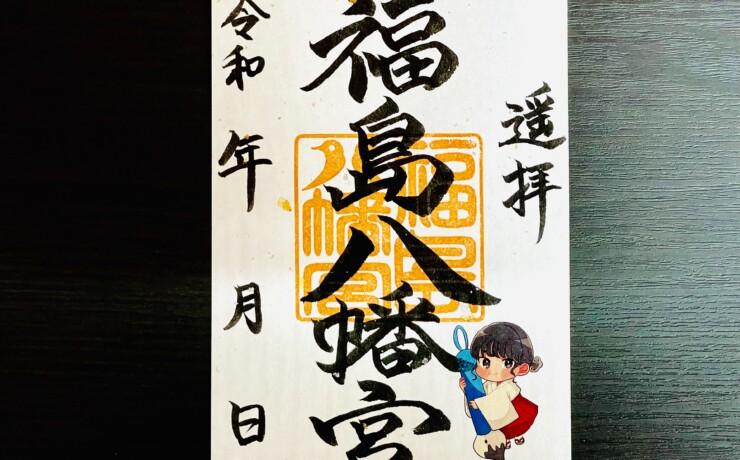 遥拝
福島八幡宮
福島
八幡宮
令和 年 月 日